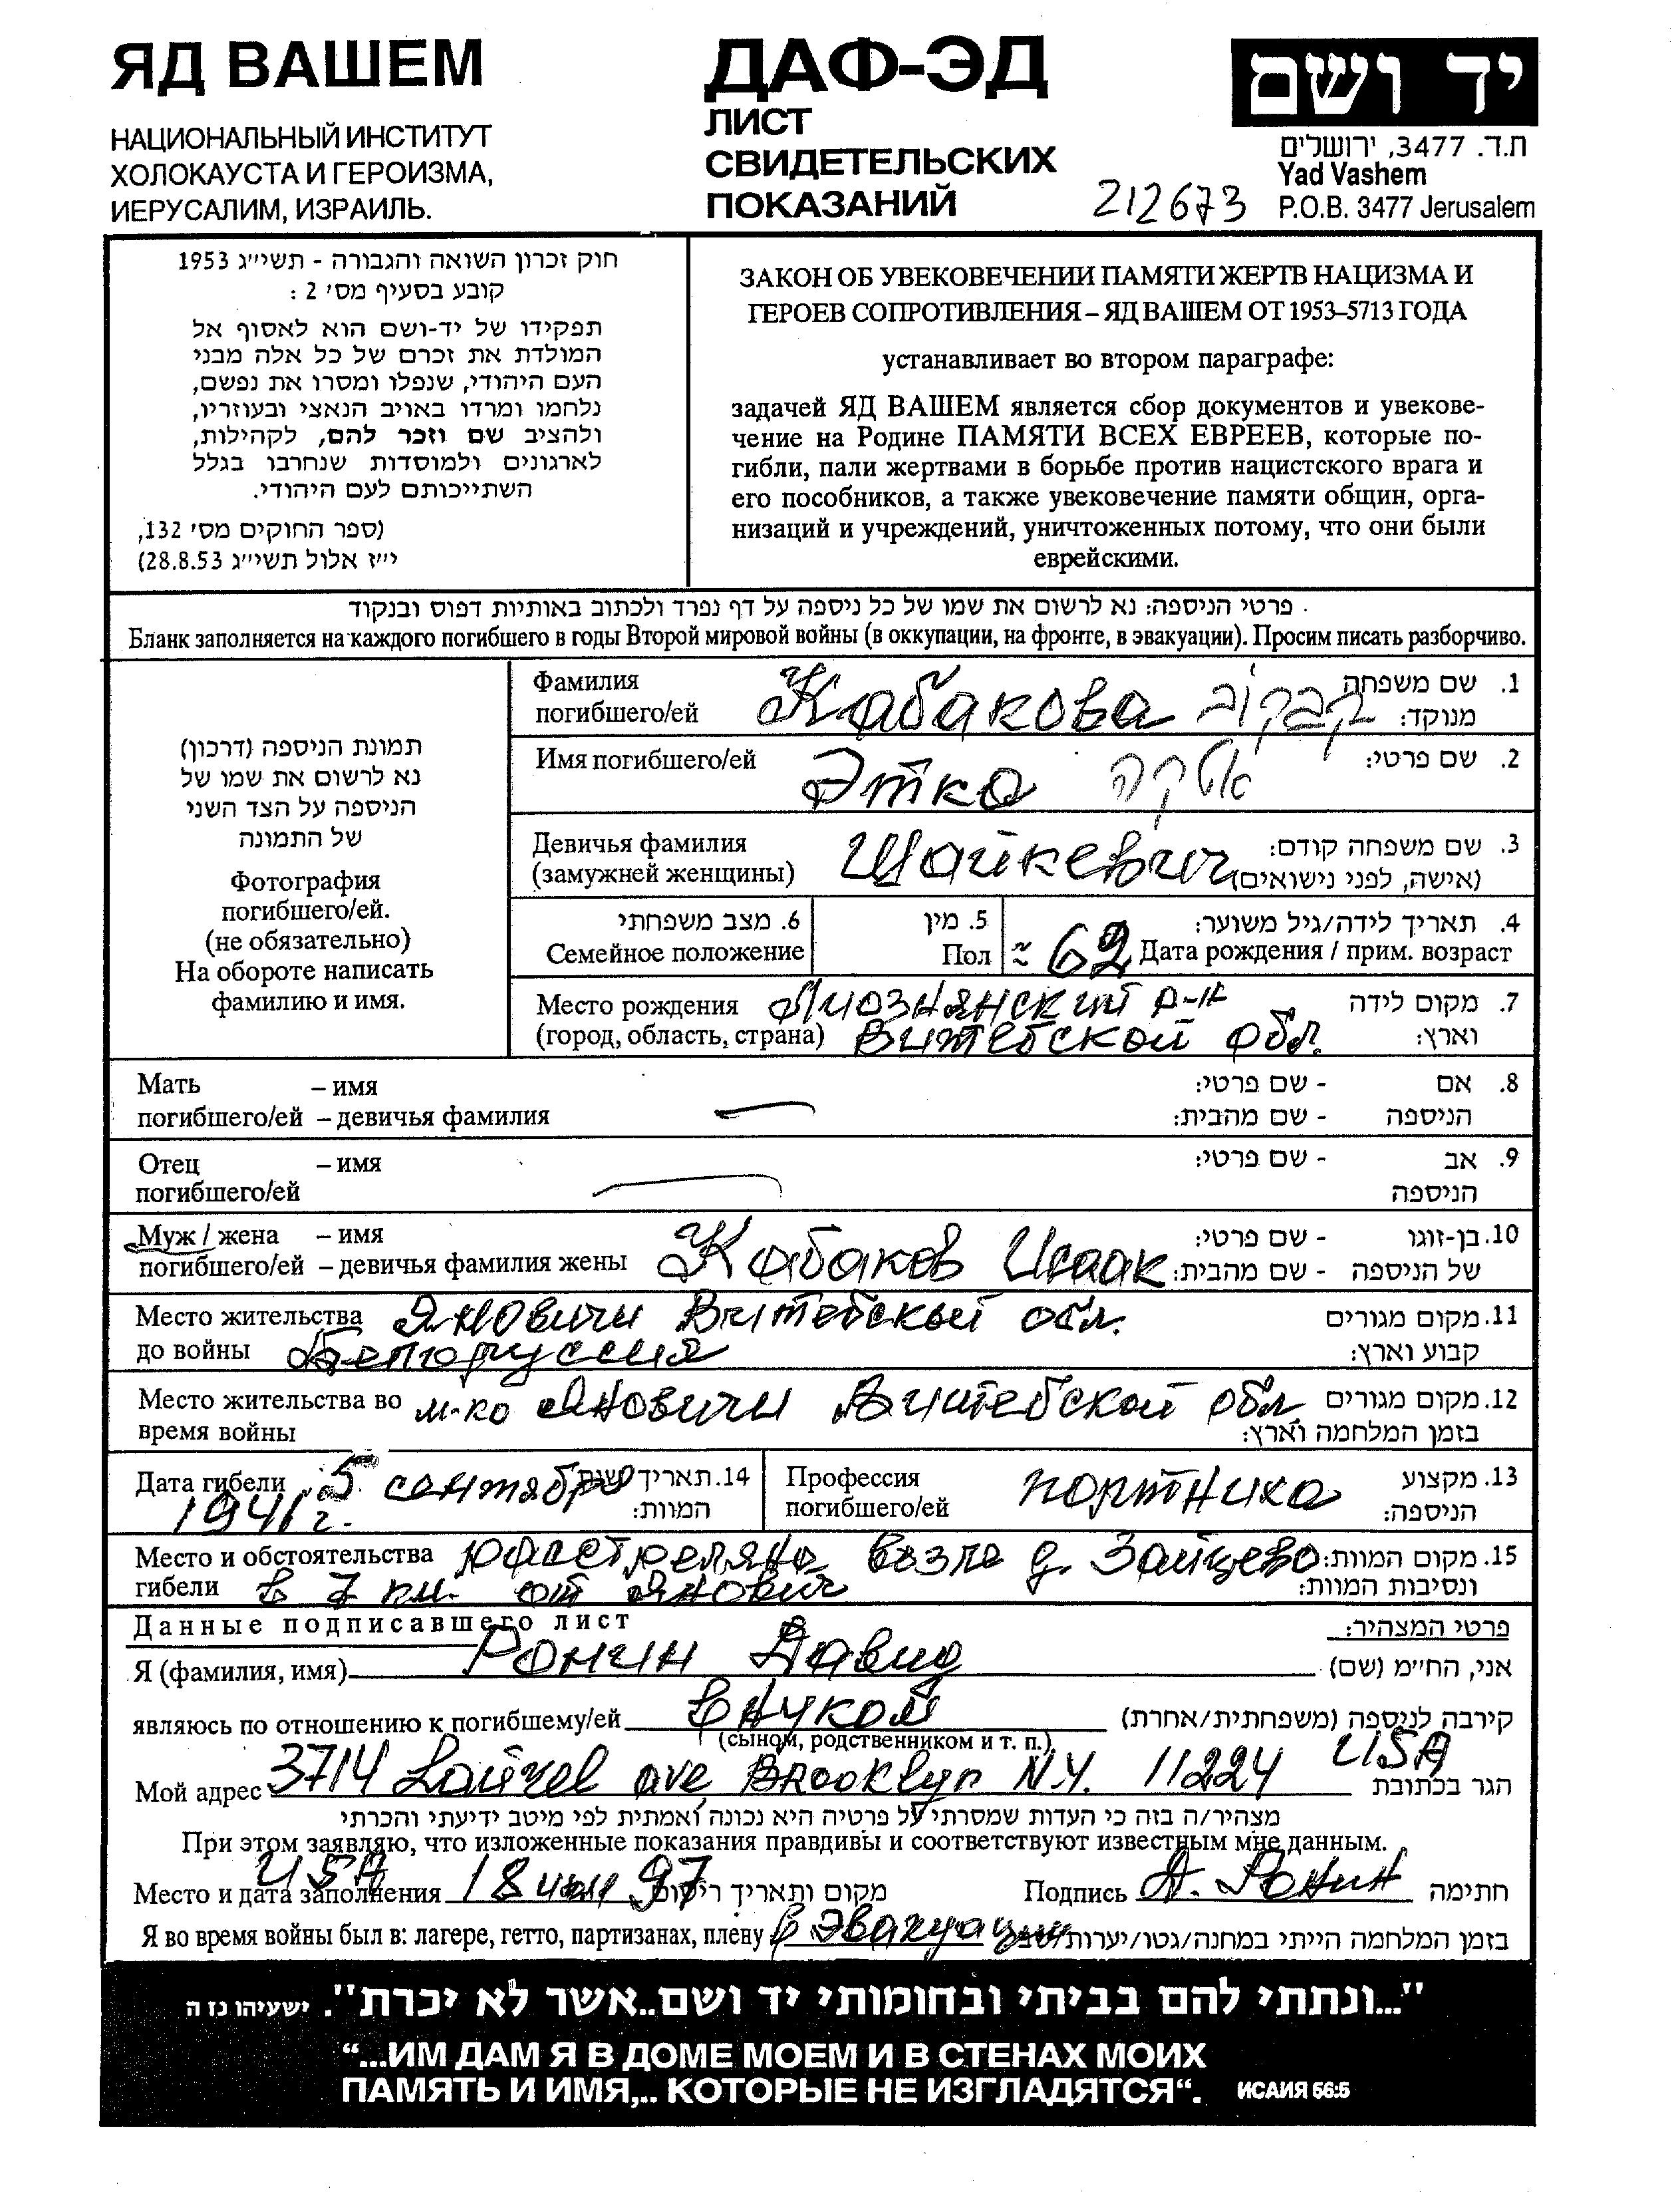 ЯД ВАШЕМ
НАЦИОНАЛЬНЫЙ ИНСТИТУТ
ХОЛОКАУСТА И ГЕРОИЗМА,
ИЕРУСАЛИМ, ИЗРАИЛЬ.
ДАФ-ЭД
ЛИСТ
СВИДЕТЕЛЬСКИХ
ПОКАЗАНИЙ
212673
יד ושם
ת.ד. 3477, ירושלים
Yad Vashem
P.O.B. 3477 Jerusalem
חוק זכרון השואה והגבורה - תשי״ג 1953
קובע בסעיף מס׳ 2 :
תפקידו של יד-ושם הוא לאסוף אל
המולדת את זכרם של כל אלה מבני
העם היהודי, שנפלו ומסרו את נפשם,
נלחמו ומרדו באויב הנאצי ובעוזריו,
ולהציב שם וזכר להם, לקהילות,
לארגונים ולמוסדות שנחרבו בגלל
השתייכותם לעם היהודי.
(ספר החוקים מס׳ 132,
י״ז אלול תשי״ג 28.8.53)
ЗАКОН ОБ УВЕКОВЕЧЕНИИ ПАМЯТИ ЖЕРТВ НАЦИЗМА И
ГЕРОЕВ СОПРОТИВЛЕНИЯ – ЯД ВАШЕМ ОТ 1953–5713 ГОДА
устанавливает во втором параграфе:
задачей ЯД ВАШЕМ является сбор документов и увекове-
чение на Родине ПАМЯТИ ВСЕХ ЕВРЕЕВ, которые по-
гибли, пали жертвами в борьбе против нацистского врага и
его пособников, а также увековечение памяти общин, орга-
низаций и учреждений, уничтоженных потому, что они были
еврейскими.
פרטי הניספה: נא לרשום את שמו של כל ניספה על דף נפרד ולכתוב באותיות דפוס ובנקוד .
Бланк заполняется на каждого погибшего в годы Второй мировой войны (в оккупации, на фронте, в эвакуации). Просим писать разборчиво.
תמונת הניספה (דרכון)
נא לרשום את שמו של
הניספה על הצד השני
של התמונה
Фотография
погибшего/ей.
(не обязательно)
На обороте написать
фамилию и имя.
Фамилия
погибшего/ей Кабакова קבקוב
1. שם משפחה
מנוקד:
Имя погибшего/ей Этка אטקה 2. שם פרטי:
Девичья фамилия
(замужней женщины) Шайкевич
3. שם משפחה קודם:
(אישה, לפני נישואים)
6. מצב משפחתי
Семейное положение
5. מין
Пол
4. תאריך לידה/גיל משוער:
≈ 62 Дата рождения / прим. возраст
Место рождения Лиознянский р-н
(город, область, страна) Витебской обл.
7. מקום לידה
וארץ:
Мать – имя
погибшего/ей – девичья фамилия
8. אם - שם פרטי:
הניספה - שם מהבית:
Отец – имя
погибшего/ей
9. אב - שם פרטי:
הניספה
Муж / жена – имя
погибшего/ей – девичья фамилия жены Кабаков Исаак
10. בן-זוגו - שם פרטי:
של הניספה - שם מהבית:
Место жительства Яновичи Витебской обл.
до войны Белоруссия
11. מקום מגורים
קבוע וארץ:
Место жительства во м-ко Яновичи Витебской обл.
время войны
12. מקום מגורים
בזמן המלחמה וארץ:
Дата гибели 5 сентября
1941 г.
14. תאריך
המוות:
Профессия
погибшего/ей портниха
13. מקצוע
הניספה:
Место и обстоятельства расстреляна возле д. Зайцево
гибели в 7 км. от Янович
15. מקום המוות:
ונסיבות המוות:
Данные подписавшего лист
פרטי המצהיר:
Я (фамилия, имя) Ронин Давид אני, החי״מ (שם)
являюсь по отношению к погибшему/ей внуком קירבה לניספה (משפחתית/אחרת)
(сыном, родственником и т. п.)
Мой адрес 3714 Laurel ave Brooklyn N.Y. 11224 USA הגר בכתובת
מצהיר/ה בזה כי העדות שמסרתי על פרטיה היא נכונה ואמתית לפי מיטב ידיעתי והכרתי
При этом заявляю, что изложенные показания правдивы и соответствуют известным мне данным.
Место и дата заполнения USA 18 97 מקום ותאריך Подпись Д. Ронин חתימה
Я во время войны был в: лагере, гетто, партизанах, плену в эвакуации בזמן המלחמה הייתי במחנה/גטו/יערות
"...ונתתי להם בביתי ובחומותי יד ושם..אשר לא יכרת". ישעיהו נז ה
“...ИМ ДАМ Я В ДОМЕ МОЕМ И В СТЕНАХ МОИХ
ПАМЯТЬ И ИМЯ,.. КОТОРЫЕ НЕ ИЗГЛАДЯТСЯ“. ИСАИЯ 56:5